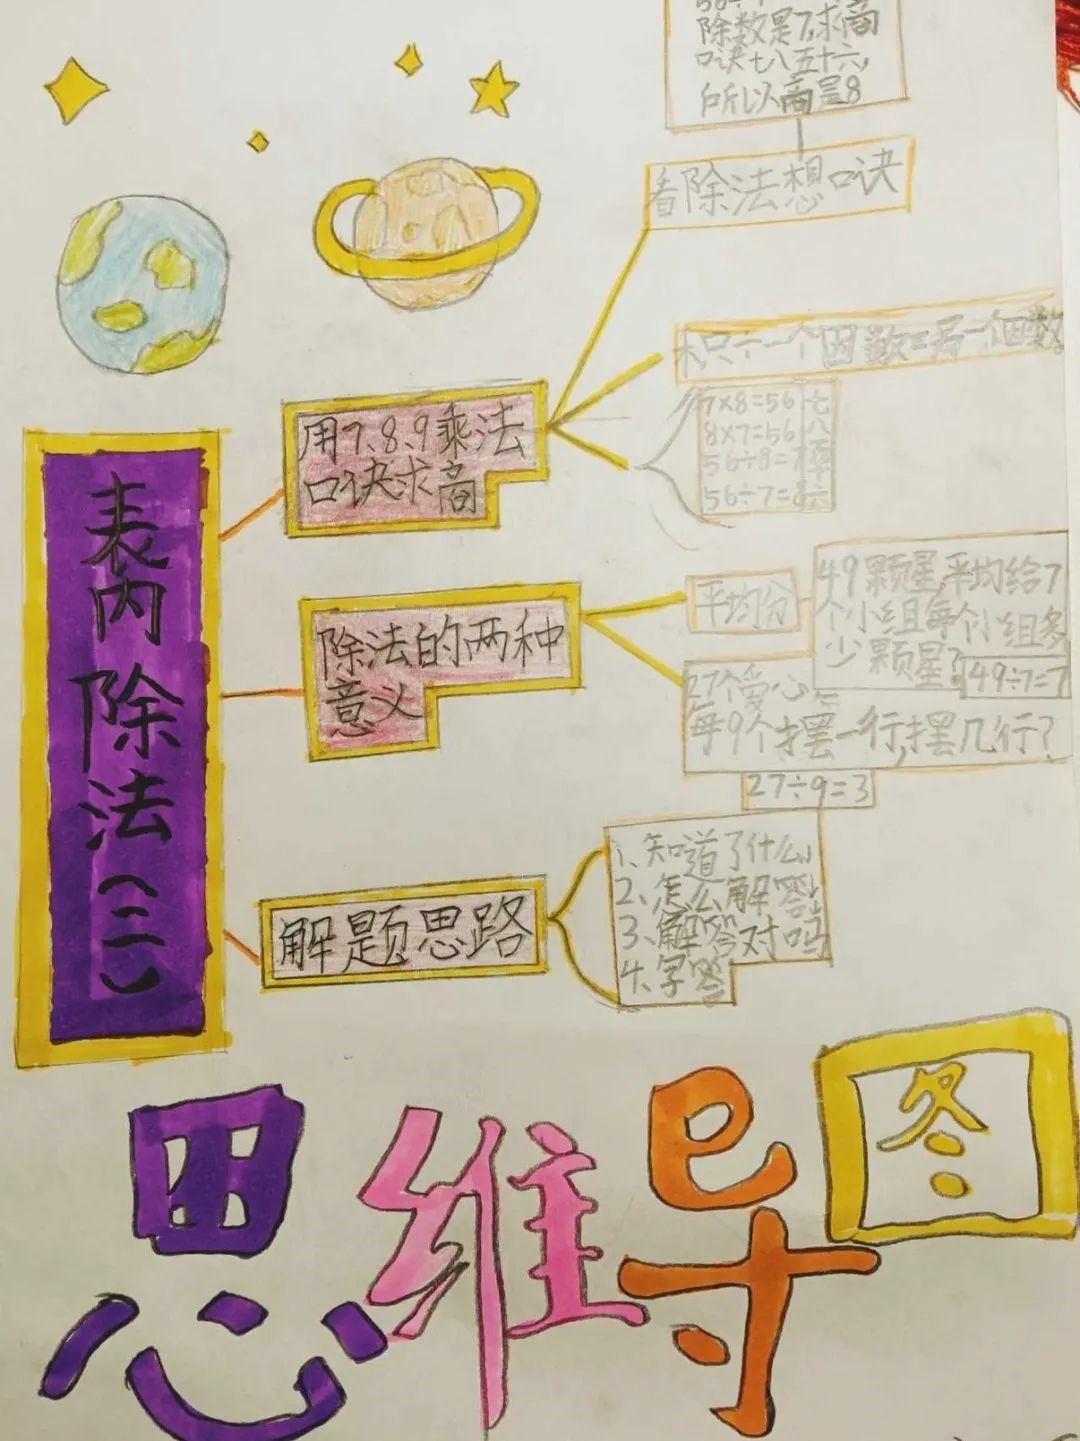 表内除法(二)
用7、8、9乘法
口诀求商
除数是7,求商
口诀七八五十六,
所以商是8
看除法想口诀
积÷一个因数=另一个因数
7×8=56
8×7=56
56÷8=7
56÷7=8
七八五十六
除法的两种
意义
平均分
49颗星,平均给7
个小组每个小组多
少颗星?
49÷7=7
27个爱心
每9个摆一行,摆几行?
27÷9=3
解题思路
1、知道了什么
2、怎么解答
3、解答对吗
4、写答
思维导图